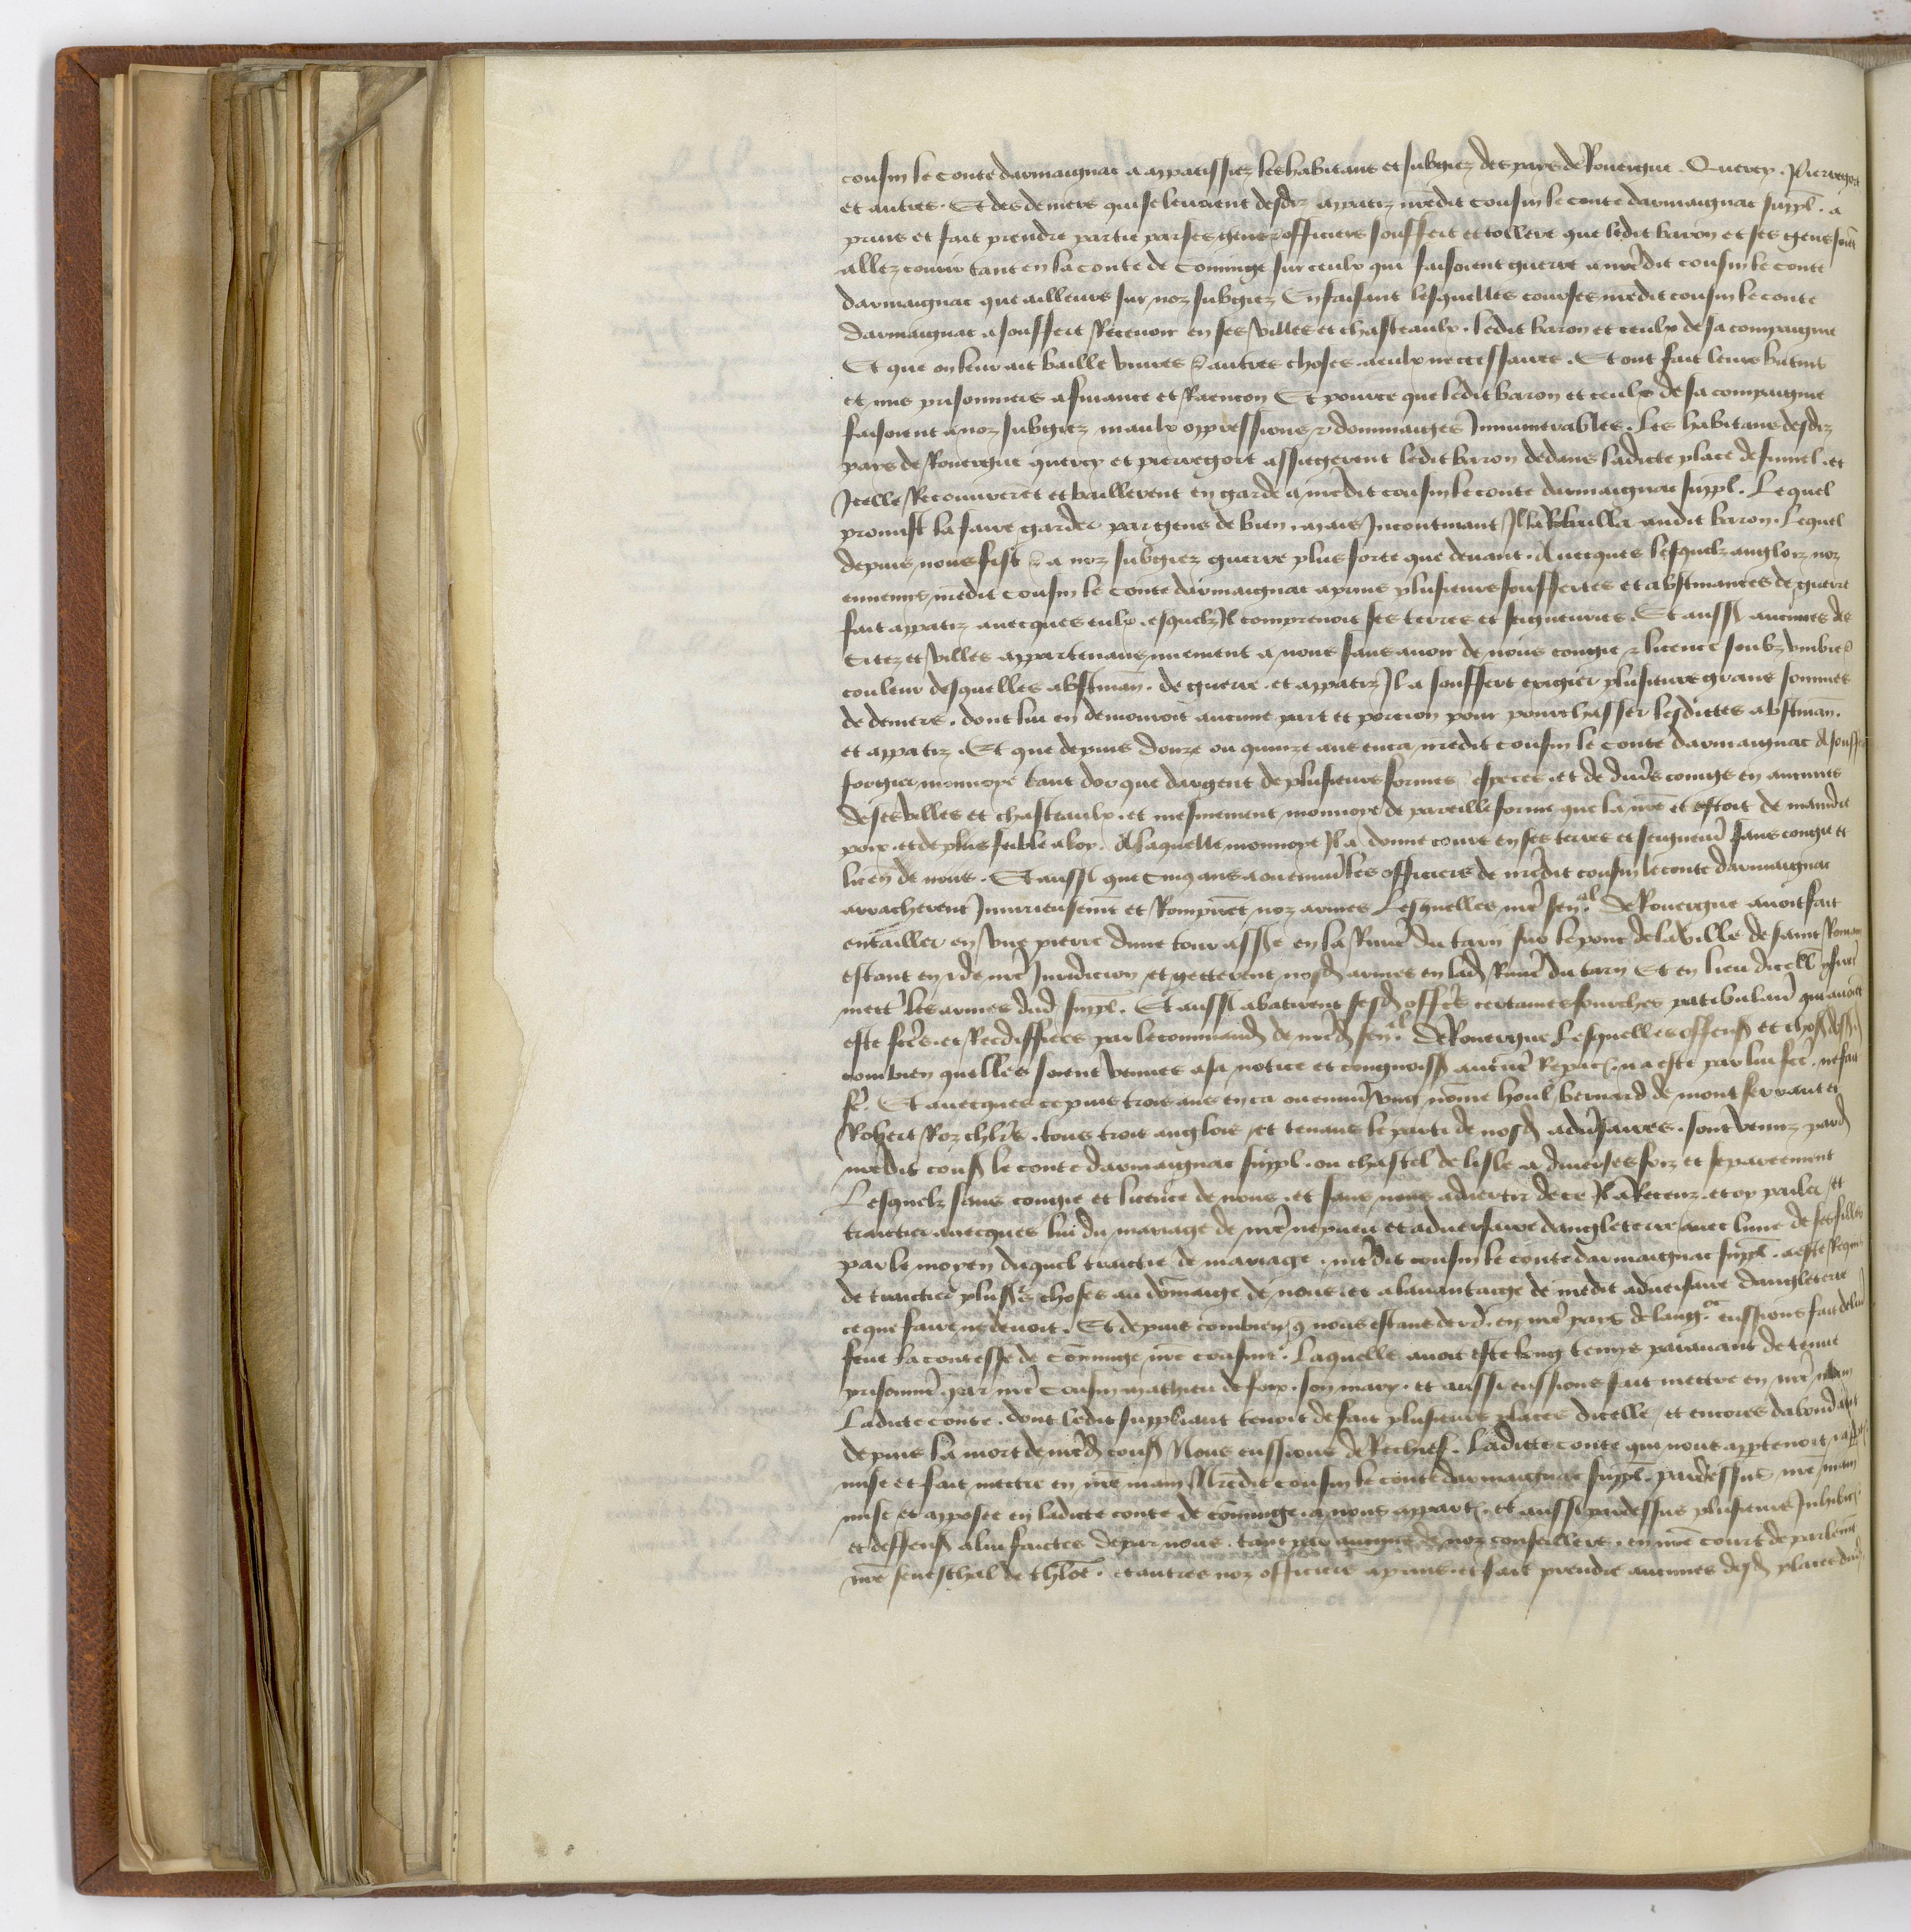 cousin le conte darmaignac a appatissiez les habitans et subgiez des pays de Rouergue . Quercy . Pierregort
et autres . Et des deniers qui se levoient desdiz appatiz nredit cousin le conte darmaignac suppl . a
prins et fait prendre partie par ses gens & officiers souffert et tollere que ledit baron et ses gens soient
allez courir tant en la conte de Cominge sur ceulx qui faisoient guerre a nredit cousin le conte
darmaignac que ailleurs sur noz subgiez En faisant lesquelles courses nredit cousin le conte
darmaignac a souffert Recevoir en ses villes et chasteaulx . ledit baron et ceulx de sa compaignie
Et que on leur ait baille vivres & autres choses a eulx neccessaires . Et ont fait leurs butins
et mis prisonniers a finance et Raencon Et pource que ledit baron et ceulx de sa compaignie
faisoient a noz subgiez maulx oppressions & dommaiges Innumerables . Les habitans desdiz
pays de Rouergue quercy et pierregort assiegerent ledit baron dedans ladicte place de fumel . et
Icelle Recouvrerent et baillerent en garde a nredit cousin le conte darmaignac suppl . Lequel
promist la faire garder par gens de bien . mais Incontinant Il la Rebailla audit baron . Lequel
depuis nous fist & a noz subgiez guerre plus forte que devant . Avecques lesquelz anglois noz
ennemys nredit cousin le conte darmaignac a prins plusieurs souffertes et abstinances de guerre
fait appatiz avecques eulx . esquelz Il comprenoit ses terres et seigneuries . Et aussi aucunes des
citez et villes appartenans nuement a nous sans avoir de nous congie & licence soubz umbre &
couleur desquelles abstinan . de guerre . et appatiz Il a souffert exigier plusieurs grans sommes
de deniers . dont lui en demouroit aucune part et porcion pour pourchasser lesdictes abstinan .
et appatiz . Et que depuis douze ou quinze ans enca nredit cousin le conte darmaignac A souffert
forgier monnoye tant dor que dargent de plusieurs formes especes . et de divers coings en aucunes
de ses villes et chasteaulx . et mesmement monnoye de pareille forme que la nre et estoit de maindre
poix . et de plus feible aloy . A laquelle monnoye Il a donne cours en ses terres et seigneur sans congie et
licen de nous . Et aussi que cinq ans a ou environ les officiers de nredit cousin le conte darmaignac
arracherent Injurieusemt et Rompirent noz armes Lesquelles nre senal de Rouergue avoit fait
entailler en une pierre dune tour assise en la Riviere du tarn sur le pont de la ville de saint Romain
estant en & de nre Juridicion et getterent nosd armes en lad Riviere du tarn Et en lieu dicell y firent
mettre les armes dud suppl . Et aussi abatirent sesd officiers certaines fourches patibulaires qui avoient
este fetes . et Reediffiees par le commandem de nred senal . de Rouergue Lesquelles offenses et choses dess
combien quelles soient venues a sa notice et congnoiss aucune Repac . na este par lui fete . ne fait
fe . Et avecques ce puis trois ans enca ou environ ung nomme houl bernard de mont ferrant et
Robert Roz chlrs . tous trois anglois et tenans le parti de nosd adversaires . sont venuz pard
nredit cous le conte darmaignac suppl . ou chastel de lisle a diverses foiz et separeement
Lesquelz sans congie et licence de nous . et sans nous advertir de ce Il a Receuz . et oy parler et
traictier avecques lui du mariage de nre nepveu et adversaire dangleterre avec lune de ses filles
par le moyen duquel traictie de mariage . nredit cousin le conte darmaignac suppl . a este Requis
de traictier pluss choses au dommaige de nous et a lavantaige de nredit adversaire dangleterre
ce que faire ne devoit . Et depuis combien q nous estans derr . en nre pays de lang . eussions fait delivrer
feue la contesse de Cominge nre cousine . Laquelle avoit este long temps paravant detenue
prisonniere par nre Cousin mathieu de foix . son mary . et aussi eussions fait mettre en nre main
Ladicte conte . dont ledit suppliant tenoit de fait plusieurs places dicelle / et encores dabundant
depuis la mort de nred cous Nous eussions de Rechief . Ladicte conte qui nous appartenoit
mise et fait mettre en nre main Nredit cousin le conte darmaignac suppl . pardessus nre main
mise et apposee en ladicte conte de cominge . a nous appart . et aussi pardessus plusieurs Inhibic
et deffens a lui faictes de par nous . tant par aucuns de noz conseillers . en nre court de parlemt
nre seneschal de thloe . et autres noz officiers a prins . et fait prendre aucunes desd places dud